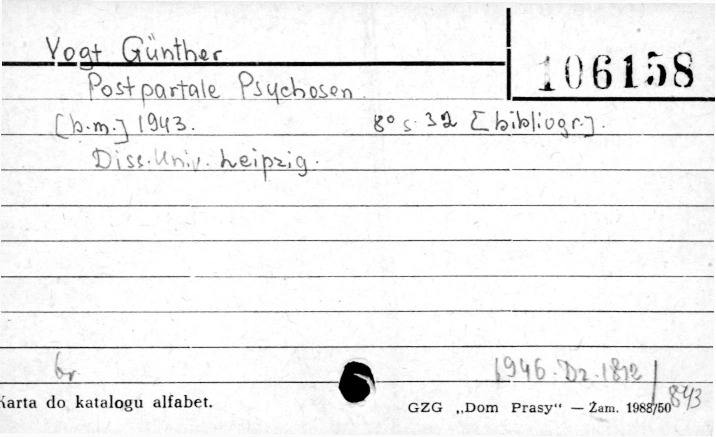 Vogt Günther
106158
Postpartale Psychosen
[b.m.] 1943. 8° s. 32 [bibliogr.].
Diss. Univ. Leipzig.
br.
1946. Dz. 1812/
843
Karta do katalogu alfabet.
GZG „Dom Prasy“ — Zam. 1988/50